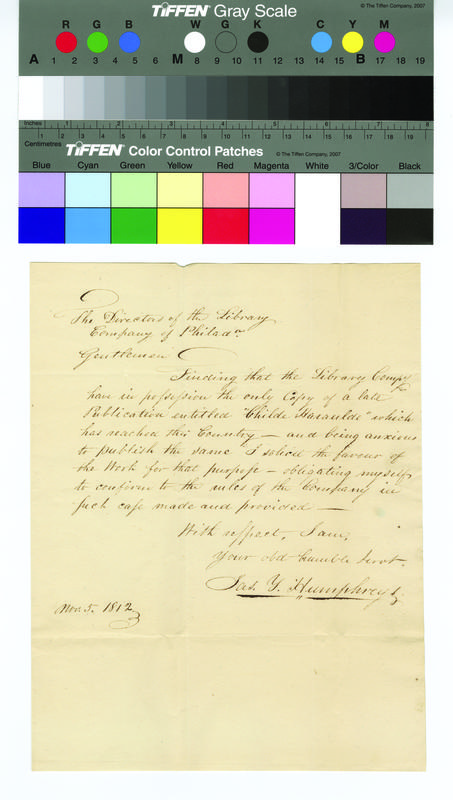 TIFFEN Gray Scale
© The Tiffen Company, 2007
R G B W G K C Y M
A 1 2 3 4 5 6 M 8 9 10 11 12 13 14 15 B 17 18 19
Inches 1 2 3 4 5 6 7 8
Centimetres 1 2 3 4 5 6 7 8 9 10 11 12 13 14 15 16 17 18 19
TIFFEN Color Control Patches
© The Tiffen Company, 2007
Blue Cyan Green Yellow Red Magenta White 3/Color Black
The Directors of the Library
Company of Philada.
Gentlemen
Finding that the Library Compy
have in possession the only Copy of a late
Publication entitled "Childe Haraulde" which
has reached this Country — and being anxious
to publish the same I solicit the favour of
the Work for that purpose — obligating myself
to conform to the rules of the Company in
such case made and provided —
With respect, I am,
Your obd humble Servt.
Jas. Y. Humphreys
Nov. 5. 1812